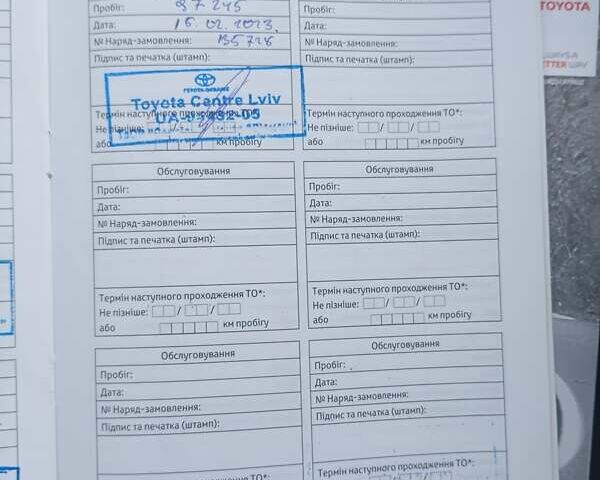 Пробіг: 97 245
Дата: 16.02.2023.
№ Наряд-замовлення: 135728
Підпис та печатка (штамп):
TOYOTA-UKRAINE
Toyota Centre Lviv
Термін наступного проходження ТО*:
Не пізніше:
або км пробігу
Пробіг:
Дата:
№ Наряд-замовлення:
Підпис та печатка (штамп):
Термін наступного проходження ТО*:
Не пізніше: / /
або км пробігу
Обслуговування
Пробіг:
Дата:
№ Наряд-замовлення:
Підпис та печатка (штамп):
Термін наступного проходження ТО*:
Не пізніше: / /
або км пробігу
Обслуговування
Пробіг:
Дата:
№ Наряд-замовлення:
Підпис та печатка (штамп):
Термін наступного проходження ТО*:
Не пізніше: / /
або км пробігу
Обслуговування
Пробіг:
Дата:
№ Наряд-замовлення:
Підпис та печатка (штамп):
Обслуговування
Пробіг:
Дата:
№ Наряд-замовлення:
Підпис та печатка (штамп):
Термін наступного проходження ТО*:
TOYOTA